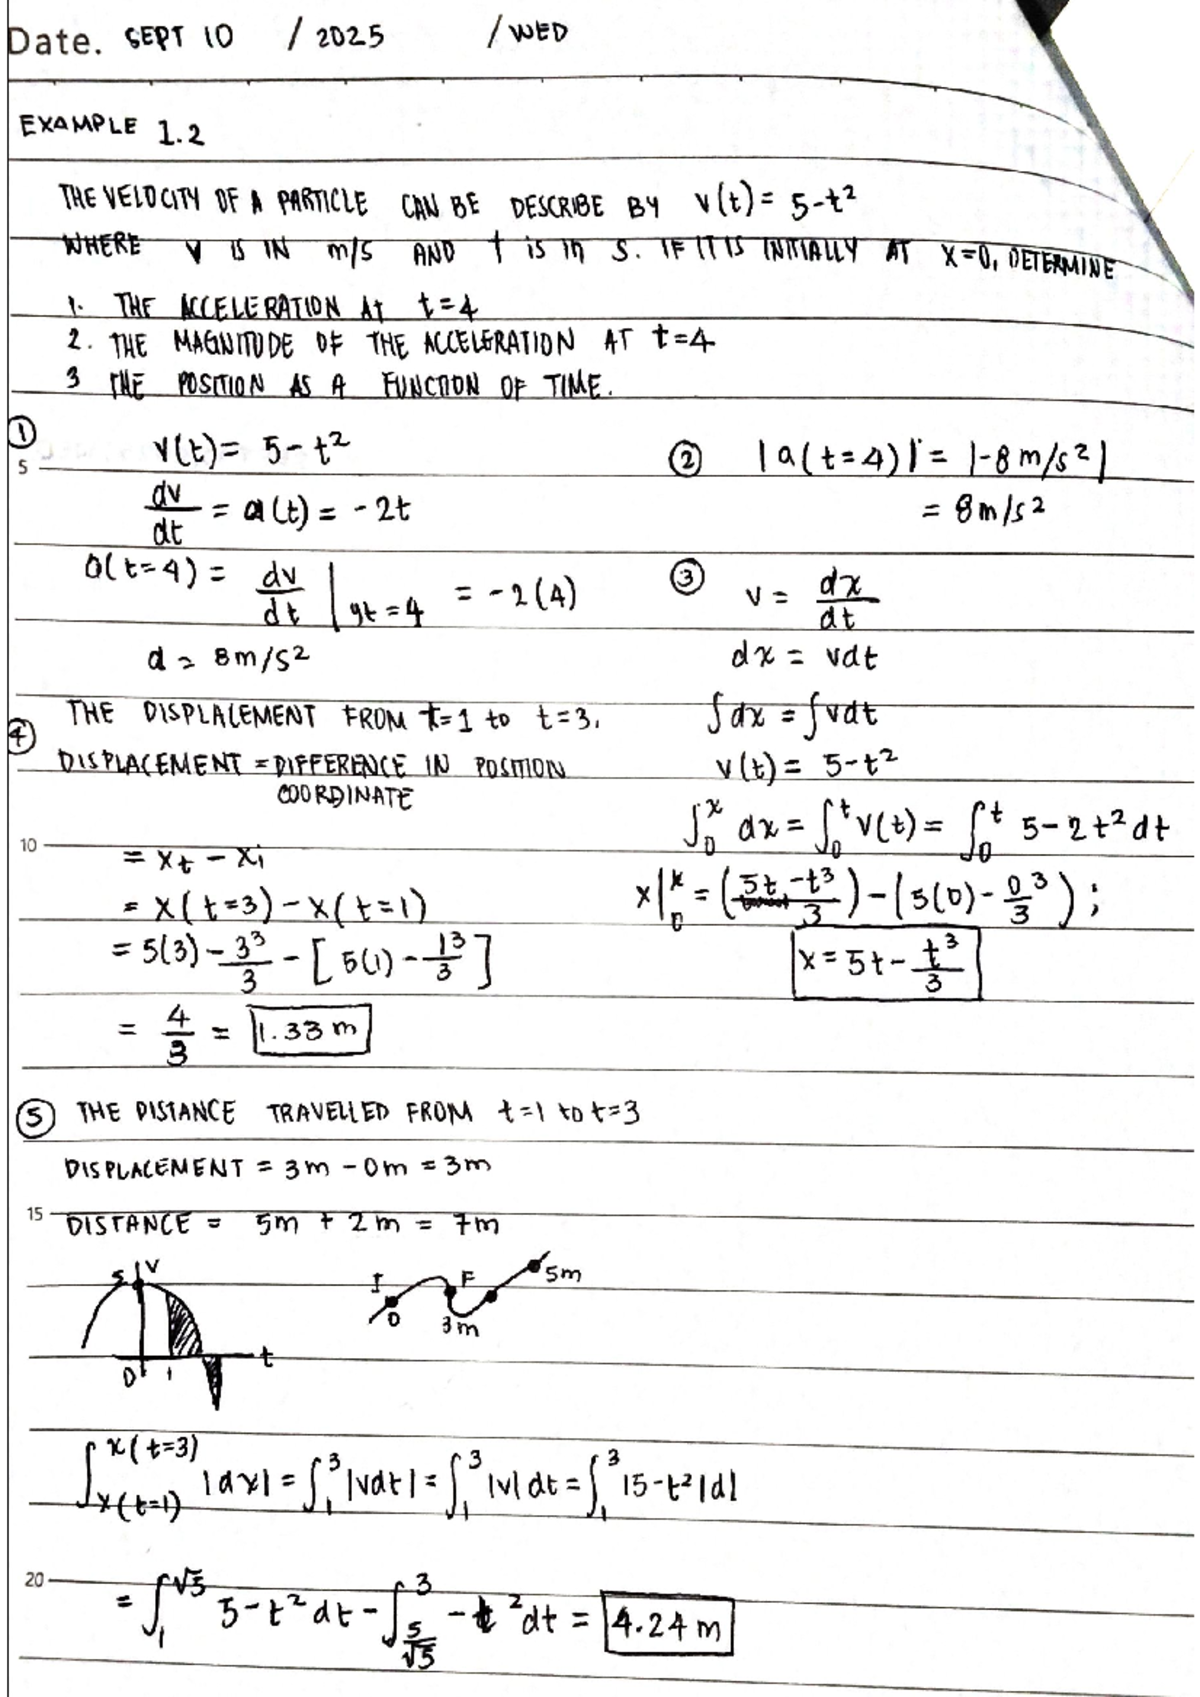 Date. SEPT 10 / 2025 / WED
EXAMPLE 1.2
THE VELOCITY OF A PARTICLE CAN BE DESCRIBE BY v(t) = 5-t²
WHERE v IS IN m/s AND t is in s. IF IT IS INITIALLY AT x=0, DETERMINE
1. THE ACCELERATION At t=4
2. THE MAGNITUDE OF THE ACCELERATION AT t=4
3 THE POSITION AS A FUNCTION OF TIME.
① v(t) = 5-t²
5
dv/dt = a(t) = -2t
a(t=4) = dv/dt | at=4 = -2(4)
a = 8m/s²
② |a(t=4)| = |-8m/s²|
= 8m/s²
③ v = dx/dt
dx = vdt
∫dx = ∫vdt
v(t) = 5-t²
∫₀ˣ dx = ∫₀ᵗ v(t) = ∫₀ᵗ 5-2t² dt
x|₀ˣ = (5t - t³/3) - (5(0) - 0³/3);
x = 5t - t³/3
④ THE DISPLACEMENT FROM t=1 to t=3.
DISPLACEMENT = DIFFERENCE IN POSITION
COORDINATE
10
= xt - xi
= x(t=3) - x(t=1)
= 5(3) - 3³/3 - [5(1) - 1³/3]
= 4/3 = 1.33 m
⑤ THE DISTANCE TRAVELLED FROM t=1 to t=3
DISPLACEMENT = 3m - 0m = 3m
15
DISTANCE = 5m + 2m = 7m
5 v
0 1 t
I F 5m
0 3m
∫ₓ₍ₜ₌₁₎ˣ⁽ᵗ⁼³⁾ |dx| = ∫₁³ |vdt| = ∫₁³ |v| dt = ∫₁³ |5-t²|d
20
= ∫₁^√5 5-t² dt - ∫_(5/√5)^3 -t² dt = 4.24 m